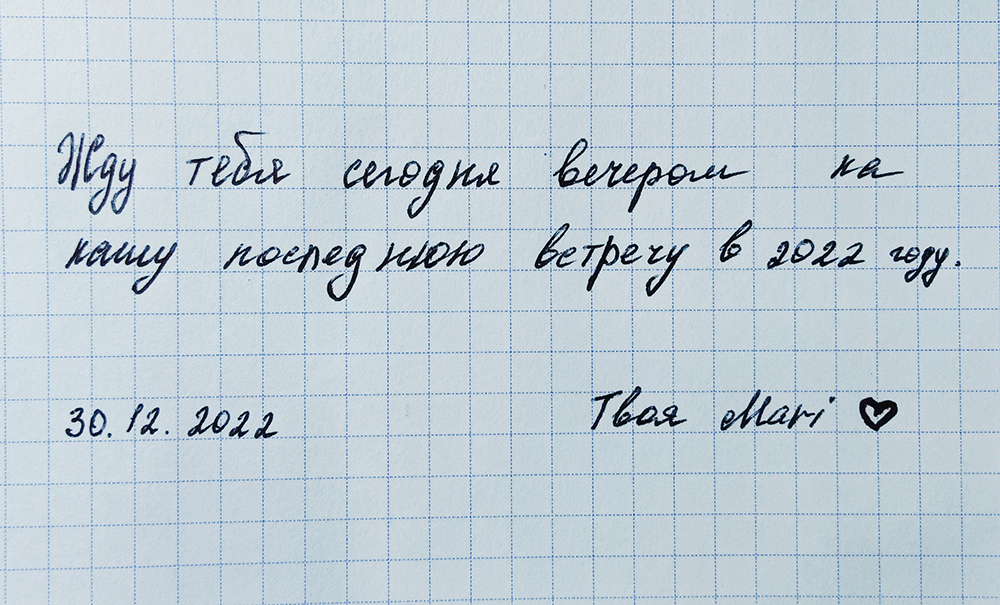 Жду тебя сегодня вечером на
нашу последнюю встречу в 2022 году.
30.12.2022 Твоя Mari ♡